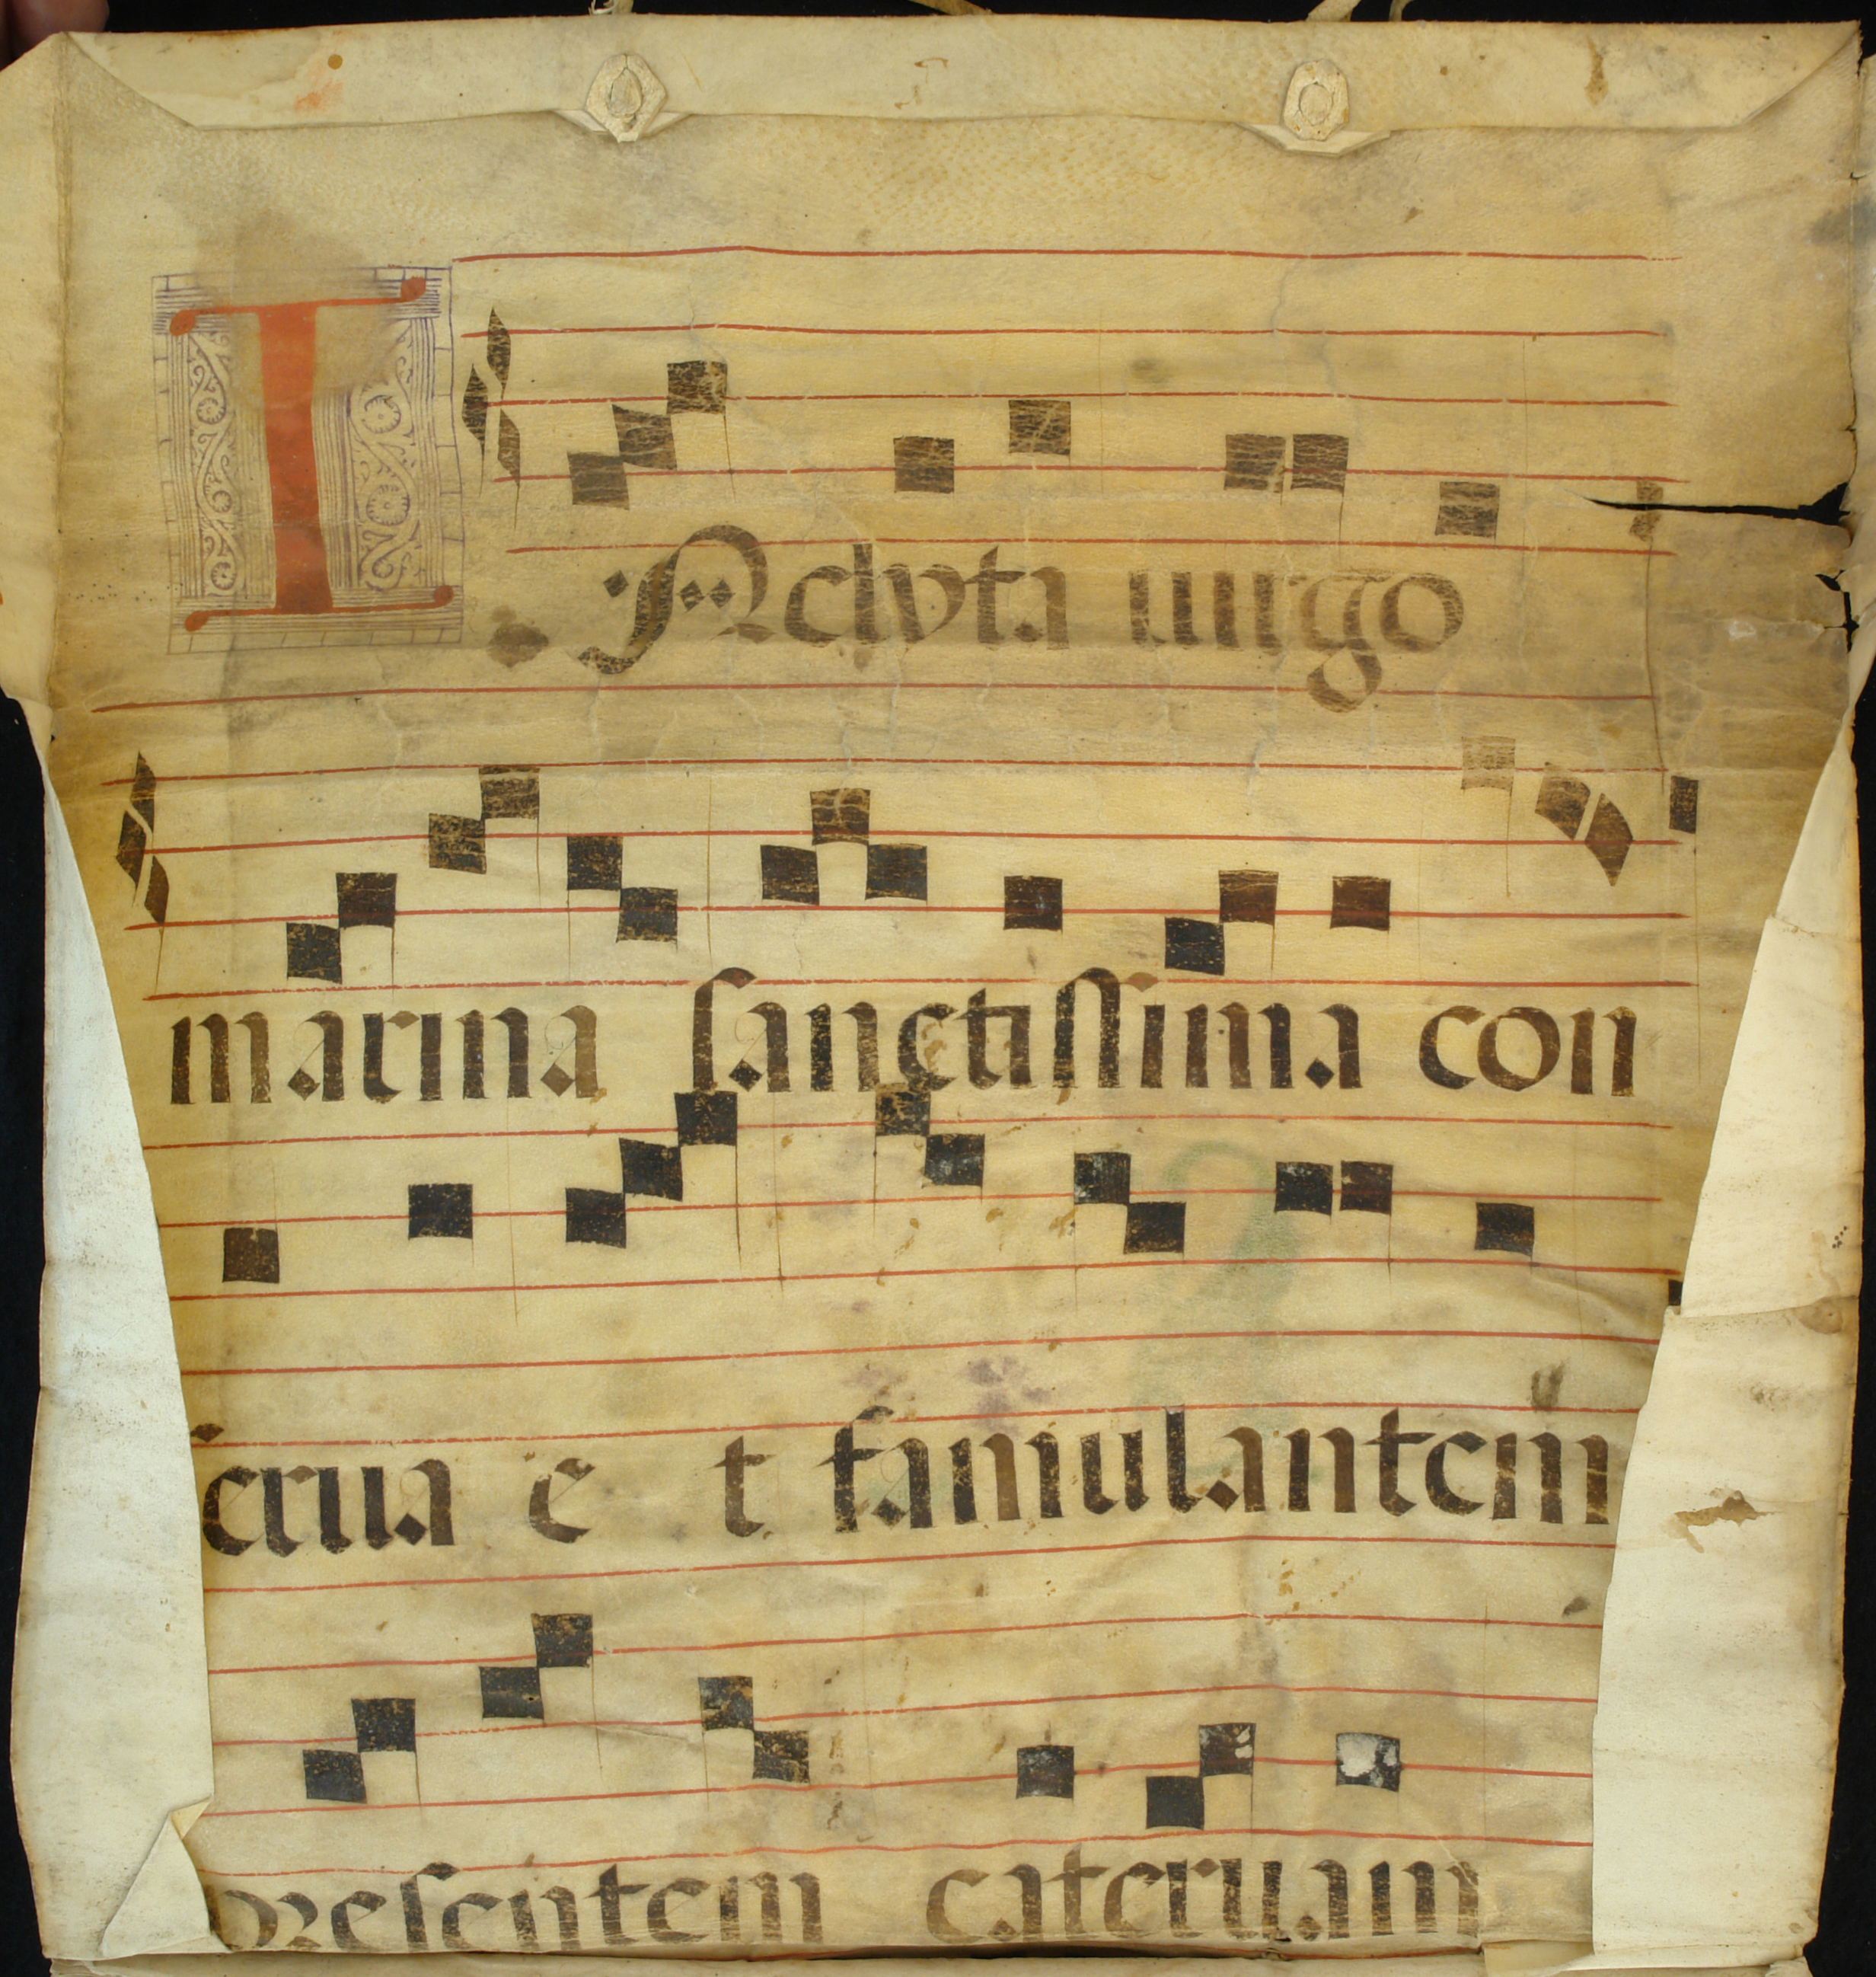 INclyta uirgo
marina sanctissima con
serua e t famulantem
presentem cateruam